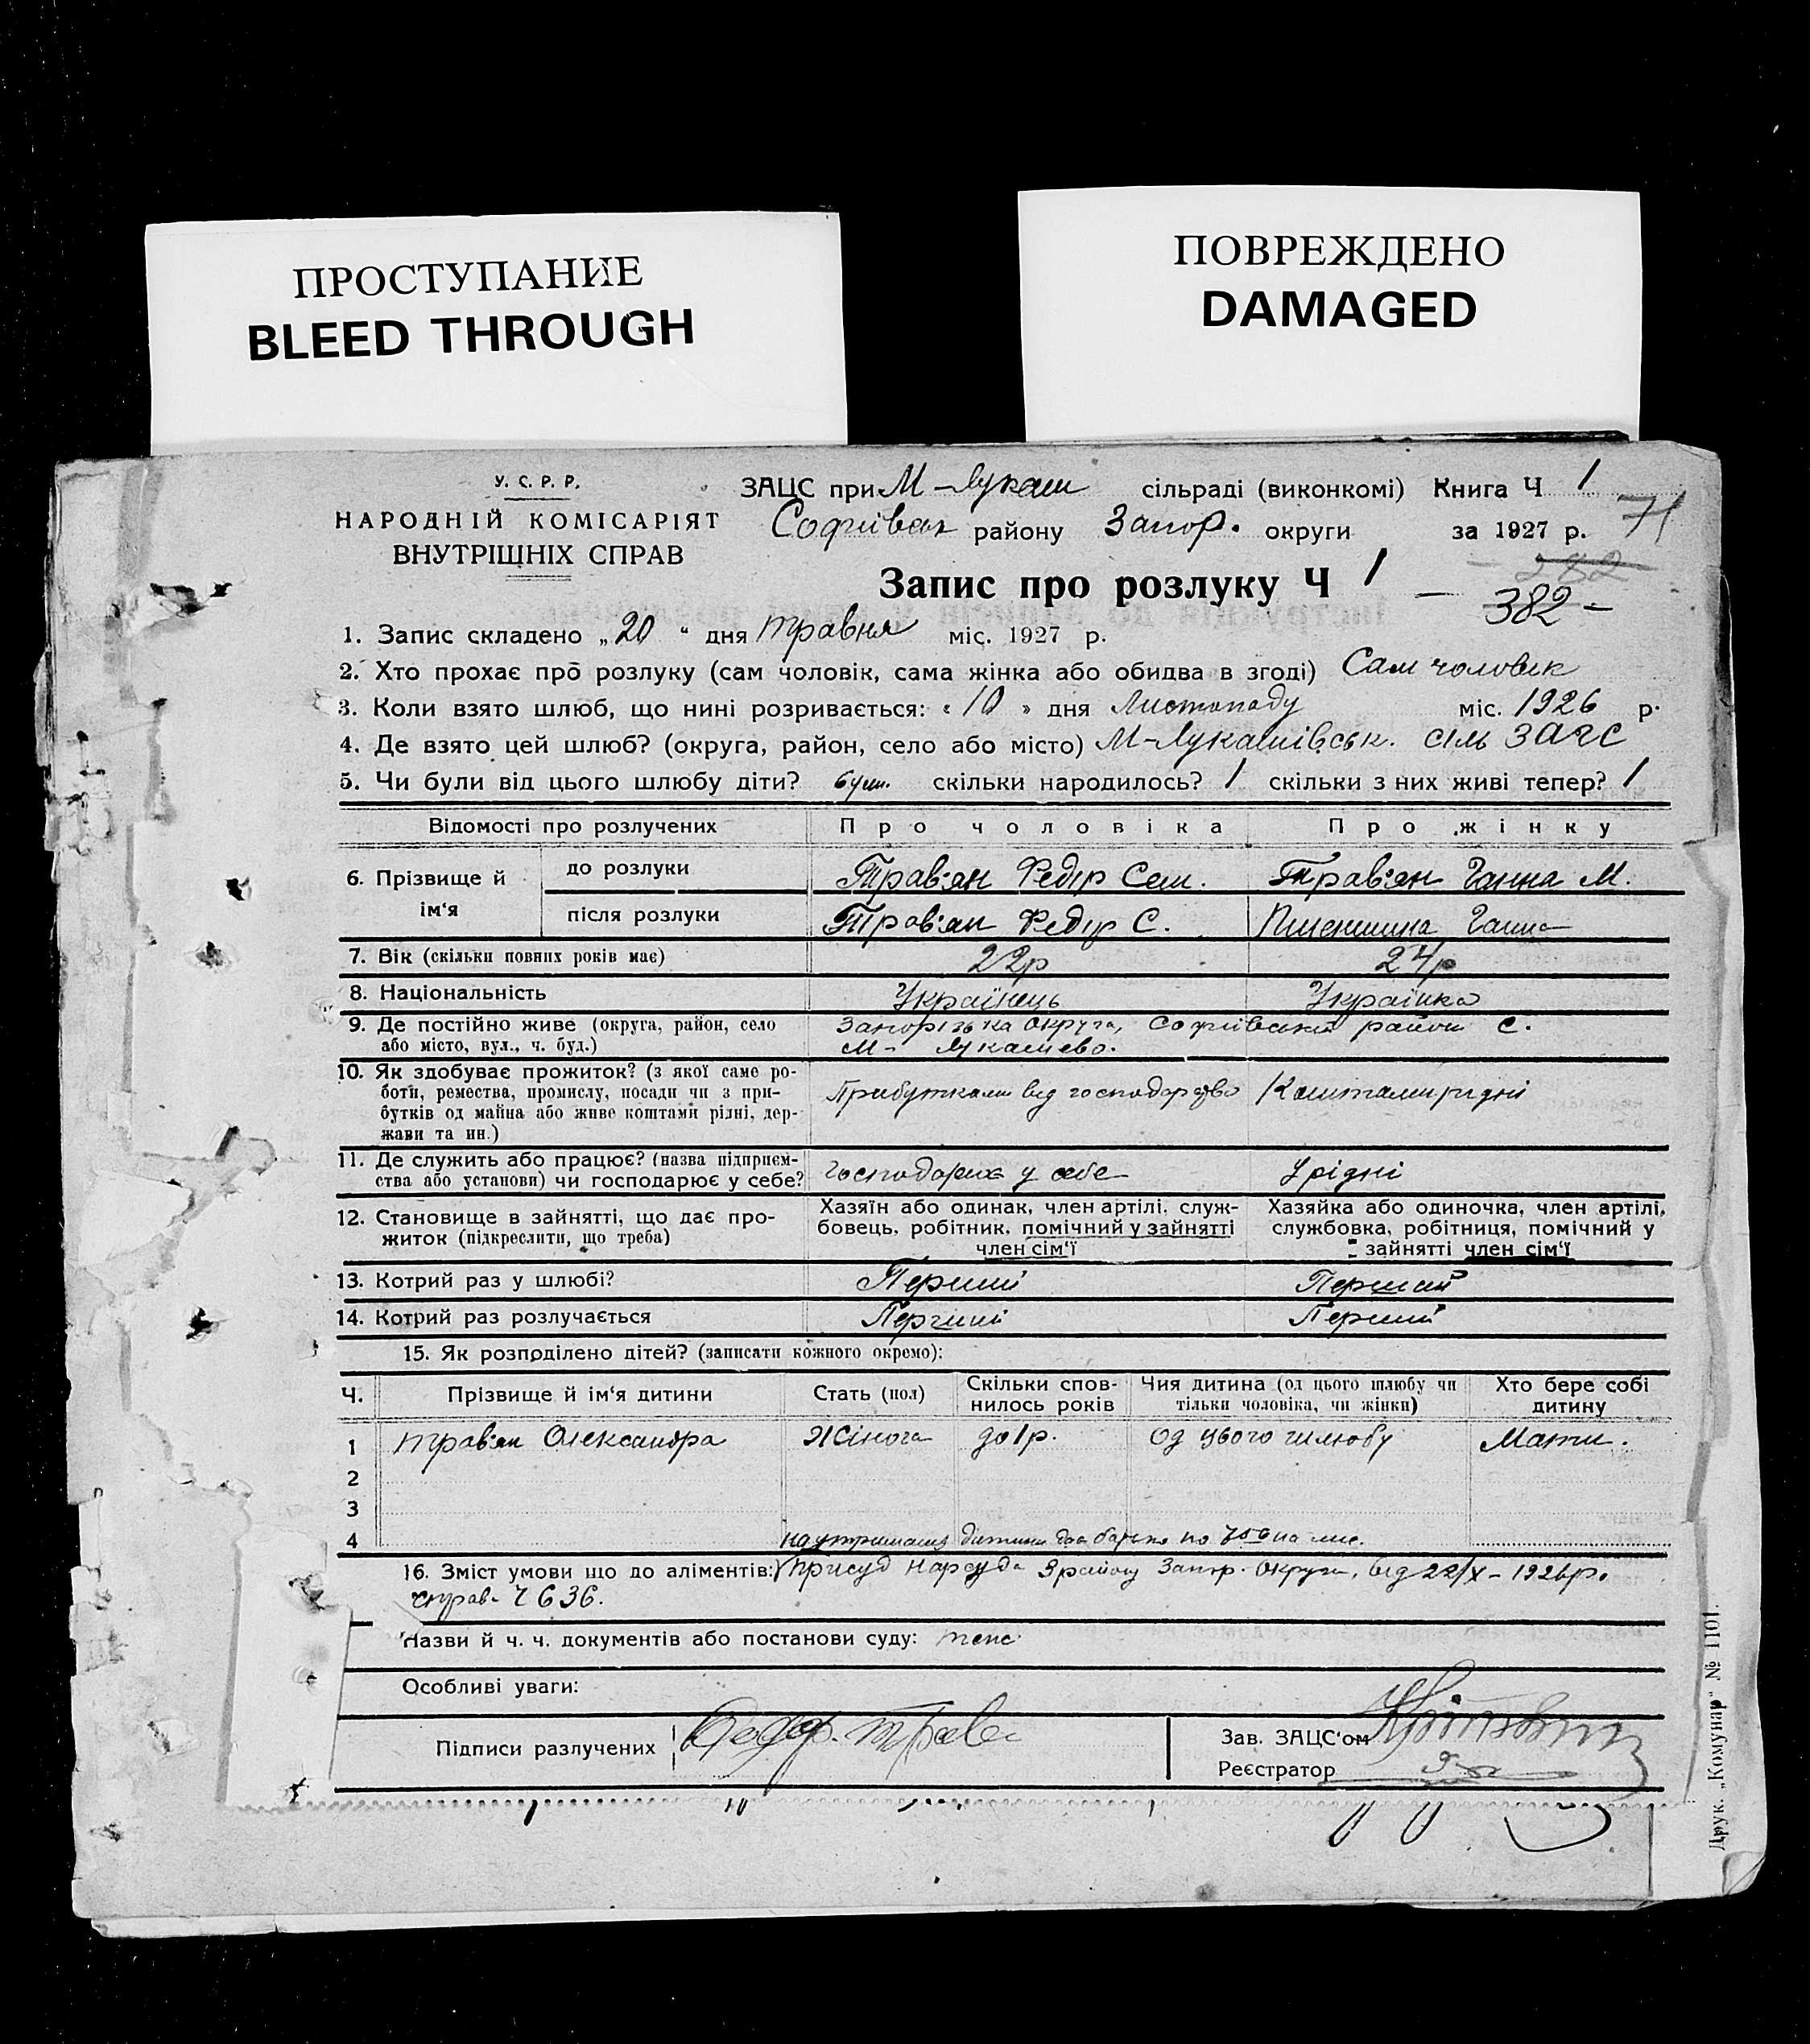 ПРОСТУПАНИЕ
BLEED THROUGH
ПОВРЕЖДЕНО
DAMAGED
У. С. Р. Р.
НАРОДНІЙ КОМІСАРІЯТ
ВНУТРІШНІХ СПРАВ
ЗАЦС при М-Лукаш сільраді (виконкомі) Книга Ч 1
Софіївськ району Запор. округи за 1927 р. 71
Запис про розлуку Ч 1
282
— 382 —
1. Запис складено „20 “ дня травня міс. 1927 р.
2. Хто прохає про розлуку (сам чоловік, сама жінка або обидва в згоді) Сам чоловік
3. Коли взято шлюб, що нині розривається: « 10 » дня Листопаду міс. 1926 р.
4. Де взято цей шлюб? (округа, район, село або місто) М-Лукашівськ. сіль ЗАГС
5. Чи були від цього шлюбу діти? скільки народилось? 1 скільки з них живі тепер? 1
Відомості про розлучених Про чоловіка Про жінку
6. Прізвище й ім‘я до розлуки Трав'ян Федір Сем. Трав'ян Ганна М.
після розлуки Трав'ян Федір С. Пшенишна Ганна
7. Вік (скільки повних років має) 22р 24р
8. Національність Українець Українка
9. Де постійно живе (округа, район, село Запорізька округа, Софіївський район с.
або місто, вул., ч. буд.) М- Лукашево.
10. Як здобуває прожиток? (з якої саме ро-
боти, ремества, промислу, посади чи з при- Прибутками від господарства Коштами рідні
бутків од майна або живе коштами рідні, дер-
жави та ин.)
11. Де служить або працює? (назва підприєм-
ства або установи) чи господарює у себе? господарює у себе У рідні
12. Становище в зайнятті, що дає про-
житок (підкреслити, що треба)
Хазяїн або одинак, член артілі, служ-
бовець, робітник, помічний у зайнятті
член сім‘ї
Хазяйка або одиночка, член артілі,
службовка, робітниця, помічний у
зайнятті член сім‘ї
13. Котрий раз у шлюбі? Перший Перший
14. Котрий раз розлучається Перший Перший
15. Як розподілено дітей? (записати кожного окремо):
Ч. Прізвище й ім‘я дитини Стать (пол) Скільки спов-
нилось років Чия дитина (од цього шлюбу чи
тільки чоловіка, чи жінки) Хто бере собі
дитину
1 трав'ян Олександра Жіноча до 1 р. Од цього шлюбу Мати.
2
3
4 на утримання дитини батько по на міс.
16. Зміст умови що до аліментів: Присуд Нарсуда 3 району Запор. Округи, від 22/X- 1926р.
справ. Ч 636.
Назви й ч. ч. документів або постанови суду: теж
Особливі уваги:
Підписи разлучених
Зав. ЗАЦС‘ом
Реєстратор
Друк. „Комунар“ № 1101.